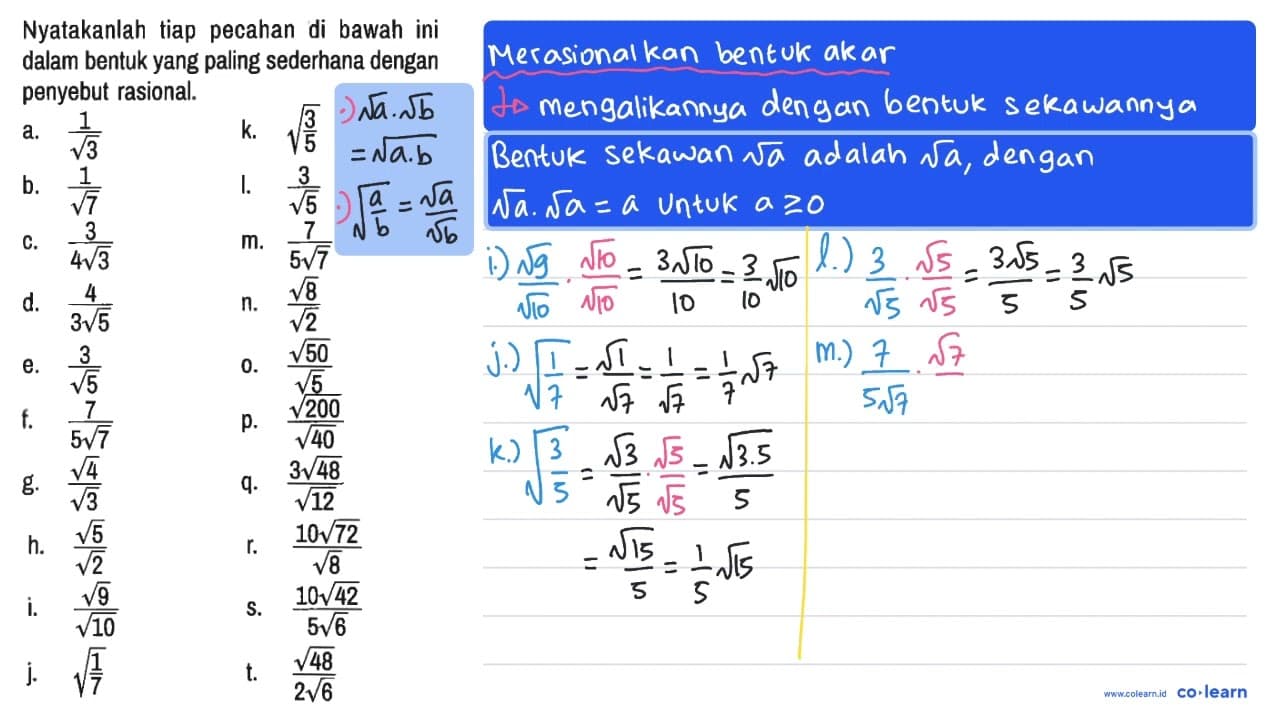 Nyatakanlah tiap pecahan di bawah ini
dalam bentuk yang paling sederhana dengan
penyebut rasional.
a. 1/√3
b. 1/√7
c. 3/4√3
d. 4/3√5
e. 3/√5
f. 7/5√7
g. √4/√3
h. √5/√2
i. √9/√10
j. √(1/7)
k. √(3/5)
l. 3/√5
m. 7/5√7
n. √8/√2
o. √50/√5
p. √200/√40
q. 3√48/√12
r. 10√72/√8
s. 10√42/5√6
t. √48/2√6
·) √a.√b
= √a.b
·) √(a/b) = √a/√b
Merasionalkan bentuk akar
↳ mengalikannya dengan bentuk sekawannya
Bentuk sekawan √a adalah √a, dengan
√a.√a = a untuk a ≥ 0
i.) √9/√10 . √10/√10 = 3√10/10 = 3/10 √10
j.) √(1/7) = √1/√7 = 1/√7 = 1/7 √7
k.) √(3/5) = √3/√5 . √5/√5 = √3.5/5
= √15/5 = 1/5 √15
l.) 3/√5 . √5/√5 = 3√5/5 = 3/5 √5
m.) 7/5√7 . √7/
www.colearn.id co·learn